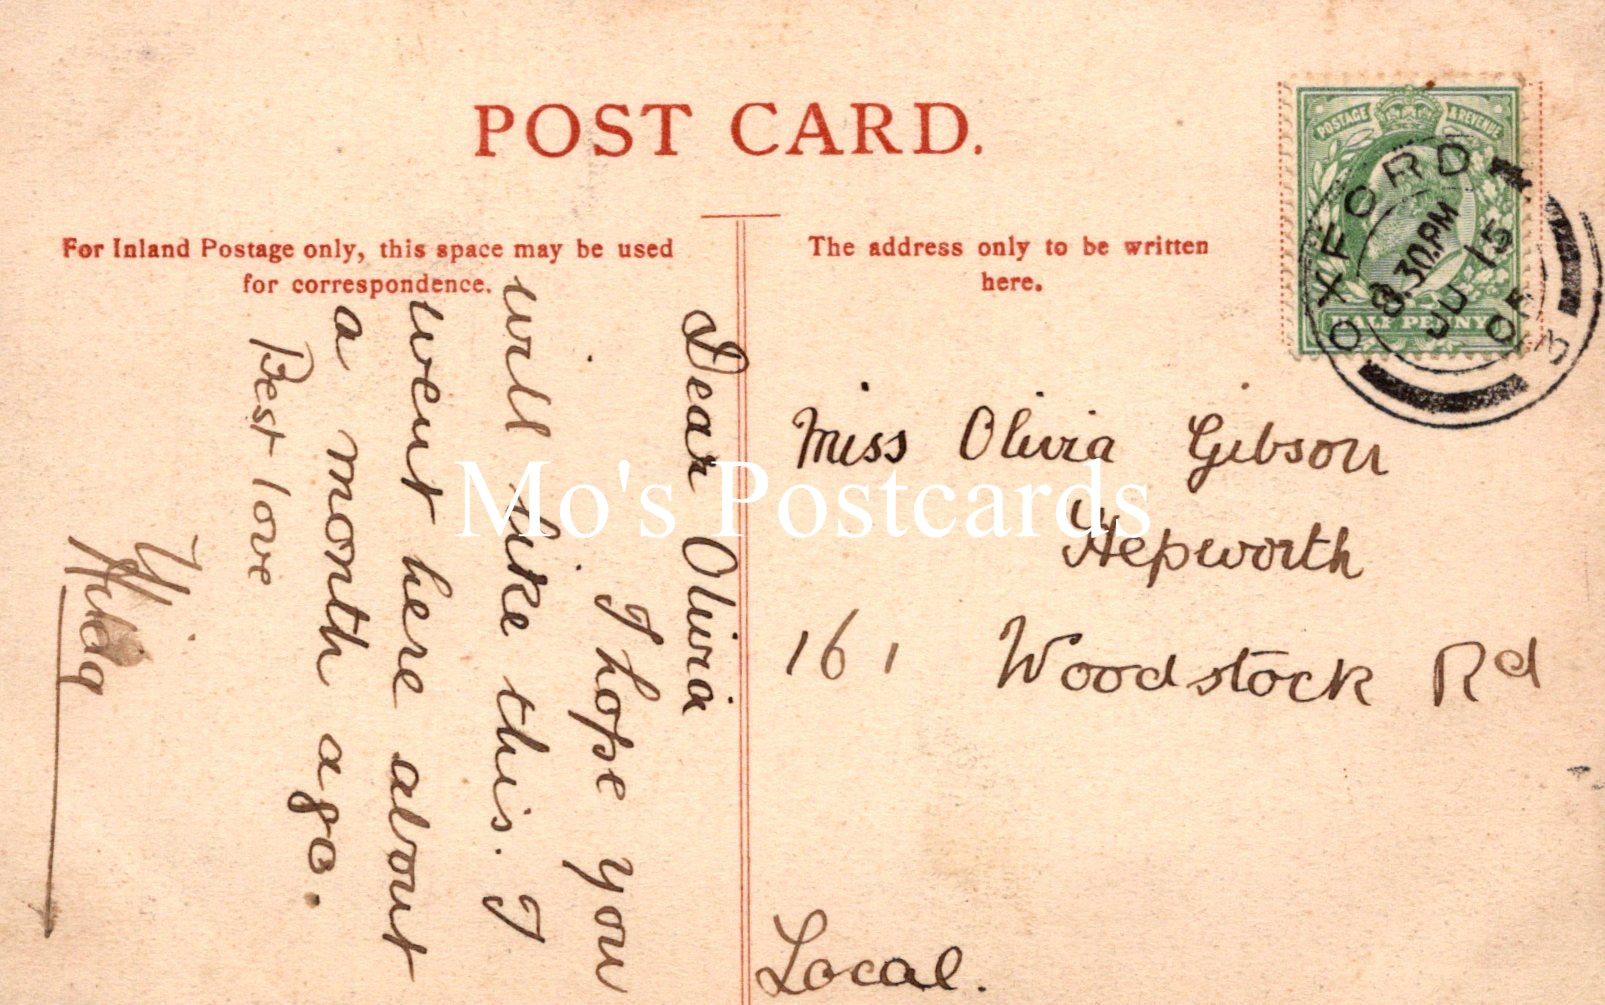 POST CARD.
For Inland Postage only, this space may be used
for correspondence.
The address only to be written
here.
POSTAGE & REVENUE
HALF PENNY
OXFORD
8.30.PM
JU 15
05
3
Dear Olivia
I hope you
will like this. I
went here about
a month ago.
Best love
Hilda
Miss Olivia Gibson
Hepworth
161 Woodstock Rd
Local.
Mo's Postcards